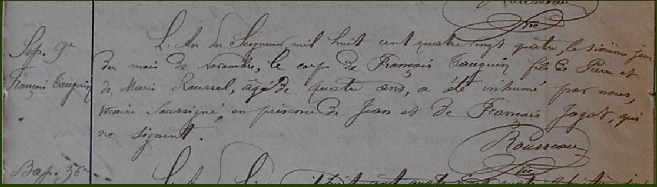 Rousseau
Ptre
Sep. 9e
François Tauguin
L'An du Seigneur, mil huit cent quatre vingt quatre, le sixième jour
du mois de novembre, le corps de François Tauguin fils de Pierre et
de Marie Roussel, agé de quatre ans, a été inhumé par nous,
vicaire soussigné, en présence de Jean et de François Jagot, qui
ne signent.
Rousseau
Ptre
Bap. 56e